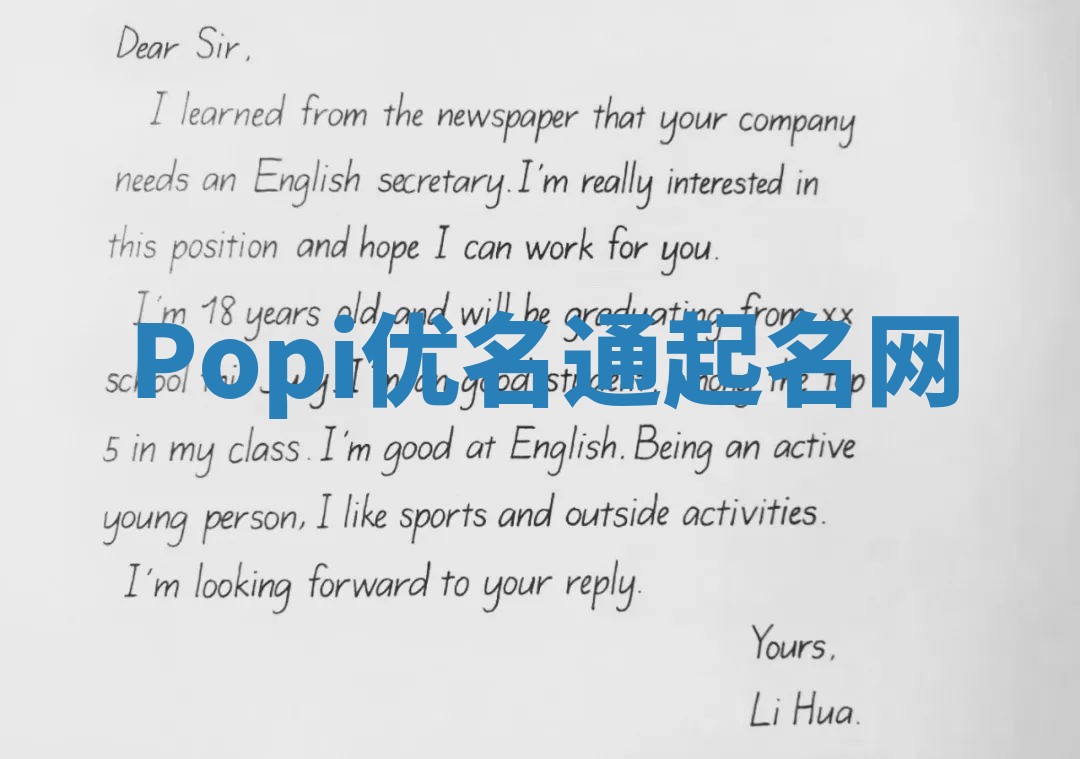 Dear Sir,
I learned from the newspaper that your company
needs an English secretary. I'm really interested in
this position and hope I can work for you.
I'm 18 years old and will be graduating from xx
Popi优名通起名网
school this July. I'm a good student, among the top
5 in my class. I'm good at English. Being an active
young person, I like sports and outside activities.
I'm looking forward to your reply.
Yours,
Li Hua.